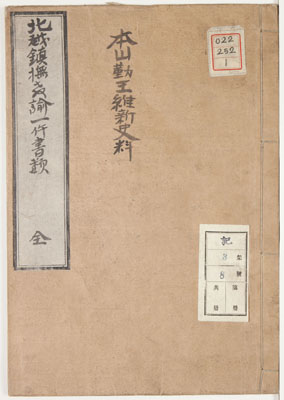 本山勤王維新史料
北越鎮撫教諭一件書類 全
022
252
1
記
3
8